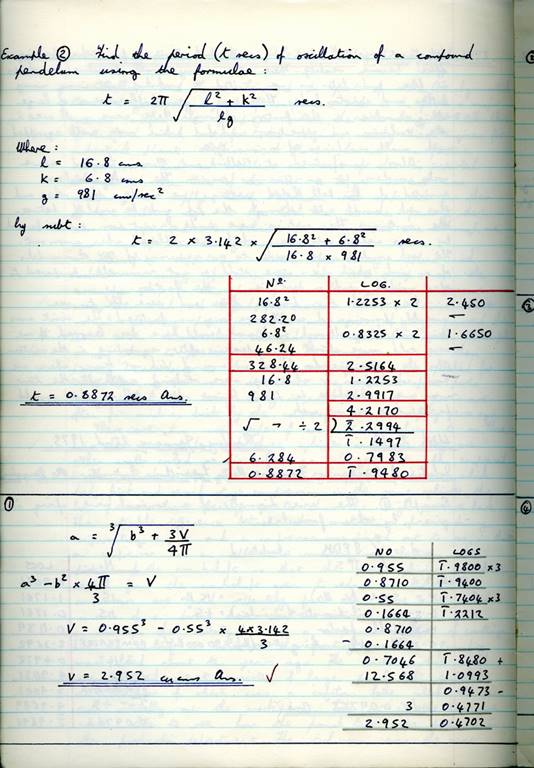 Example ② Find the period (t secs) of oscillation of a compound
pendelum using the formulae :
t = 2π √ l² + k² / lg secs.
Where :
l = 16.8 cms
k = 6.8 cms
g = 981 cm/sec²
by subt :
t = 2 x 3.142 x √ 16.8² + 6.8² / 16.8 x 981 secs.
Nº. LOG.
16.8² 1.2253 x 2 2.450
282.20
6.8² 0.8325 x 2 1.6650
46.24
328.44 2.5164
16.8 1.2253
981 2.9917
4.2170
√ → ÷ 2 ) 2̅.2994
1̅.1497
6.284 0.7983
0.8872 1̅.9480
t = 0.8872 secs Ans.
①
a = ³√ b³ + 3V / 4π
a³ – b² x 4π / 3 = V
V = 0.955³ – 0.55³ x 4x3.142 / 3
V = 2.952 Ans. ✓
NO LOGS
0.955 1̅.9800 x3
0.8710 1̅.9400
0.55 1̅.7404 x3
0.1664 1̅.2212
0.8710
– 0.1664
0.7046 1̅.8480 +
12.568 1.0993
0.9473 –
3 0.4771
2.952 0.4702
④